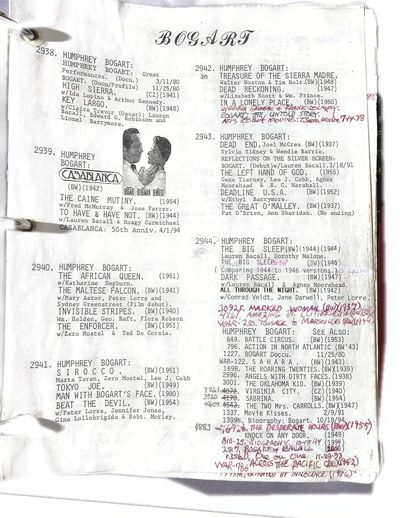 BOGART
2938. HUMPHREY BOGART:
HUMPHREY BOGART: Great
Performances. (Docu.) 3/11/80
BOGART. (Docu/Profile) 11/25/80
HIGH SIERRA. (CZ)(1941)
w/Ida Lupino & Arthur Kennedy.
KEY LARGO. (BW)(1948)
w/Claire Trevor (Oscar); Lauren
Bacall, Edward G. Robinson and
Lionel Barrymore.
2939. HUMPHREY
BOGART:
CASABLANCA
(BW)(1942)
BOGART BERGMAN HENREID
THE CAINE MUTINY. (1954)
w/Fred McMurray & Jose Ferrer.
TO HAVE & HAVE NOT. (BW)(1944)
w/Lauren Bacall & Hoagy Carmichael
CASABLANCA: 50th Anniv. 4/1/94
2940. HUMPHREY BOGART:
THE AFRICAN QUEEN. (1951)
w/Katharine Hepburn.
THE MALTESE FALCON. (BW)(1941)
w/Mary Astor, Peter Lorre and
Sydney Greenstreet (Film debut).
INVISIBLE STRIPES. (BW)(1940)
Wm. Holden, Geo. Raft, Flora Robson
THE ENFORCER. (BW)(1951)
w/Zero Mostel & Ted De Corsia.
2941. HUMPHREY BOGART:
SIROCCO. (BW)(1951)
Marta Toren, Zero Mostel, Lee J. Cobb
TOKYO JOE. (BW)(1949)
MAN WITH BOGART'S FACE. (1980)
BEAT THE DEVIL. (BW)(1954)
w/Peter Lorre, Jennifer Jones,
Gina Lollobrigida & Robt. Morley.
2942. HUMPHREY BOGART:
TREASURE OF THE SIERRA MADRE.
Walter Huston & Tim Holt.(BW)(1948)
DEAD RECKONING. (BW)(1947)
w/Lizabeth Scott & Wm. Prince.
IN A LONELY PLACE. (BW)(1950)
BOGART: THE UNTOLD STORY.
2943. HUMPHREY BOGART:
DEAD END, Joel McCrea (BW)(1937)
Sylvia Sidney & Wendie Barrie.
REFLECTIONS ON THE SILVER SCREEN-
BOGART. (Debut)w/Lauren Bacall.3/18/91
THE LEFT HAND OF GOD. (1955)
Gene Tierney, Lee J. Cobb, Agnes
Moorehead & E. G. Marshall.
DEADLINE U.S.A. (BW)(1952)
w/Ethel Barrymore.
THE GREAT O'MALLEY. (BW)(1937)
Pat O'Brien, Ann Sheridan. (No ending)
2944. HUMPHREY BOGART:
THE BIG SLEEP(BW)(1944)(1944)
Lauren Bacall, Dorothy Malone.
THE BIG SLEEP (BW)(1946)
(Comparing 1944 to 1946 versions.)
DARK PASSAGE. (BW)(1947)
w/Lauren Bacall & Agnes Moorehead.
ALL THROUGH THE NIGHT. (BW)(1942)
w/Conrad Veidt, Jane Darwell, Peter Lorre.
MARKED WOMAN (BW)(1937)
HUMPHREY BOGART: See Also:
849. BATTLE CIRCUS. (BW)(1953)
796. ACTION IN NORTH ATLANTIC (BW'43)
1227. BOGART Docu. 11/25/80
WAR-122. SAHARA. (BW)(1943)
1698. THE ROARING TWENTIES.(BW)(1939)
2996. ANGELS WITH DIRTY FACES. (1938)
3001. THE OKLAHOMA KID. (BW)(1939)
VIRGINIA CITY. (CZ)(1940)
4170. SABRINA. (BW)(1954)
4543. THE TWO Mrs. CARROLLS.(BW)(1947)
1337. Movie Kisses. 2/9/91
1399B. Biography: Bogart. 10/18/94
THE DESPERATE HOURS (BW)(1955)
KNOCK ON ANY DOOR. (1949)
BIOGRAPHY.
BOGART & BACALL
ACROSS THE PACIFIC (1942)